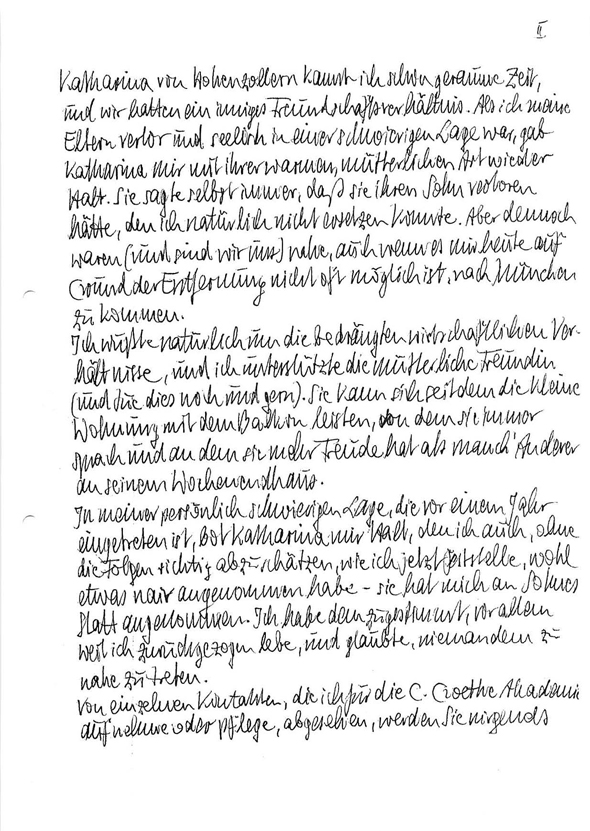 II
Katharina von Hohenzollern kannte ich schon geraume Zeit,
und wir hatten ein inniges Freundschaftsverhältnis. Als ich meine
Eltern verlor und seelisch in einer schwierigen Lage war, gab
Katharina mir mit ihrer warmen, mütterlichen Art wieder
Halt. Sie sagte selbst immer, daß sie ihren Sohn verloren
hätte, den ich natürlich nicht ersetzen konnte. Aber dennoch
waren (und sind wir uns) nahe, auch wenn es mir heute auf
Grund der Entfernung nicht oft möglich ist, nach München
zu kommen.
Ich wußte natürlich um die bedrängten wirtschaftlichen Ver-
hältnisse, und ich unterstützte die mütterliche Freundin
(und tue dies noch und gern). Sie kann sich seitdem die kleine
Wohnung mit dem Balkon leisten, von dem sie immer
sprach und an dem sie mehr Freude hat als manch' Anderer
an seinem Wochenendhaus.
In meiner persönlich schwierigen Lage, die vor einem Jahr
eingetreten ist, bot Katharina mir Halt, den ich auch, ohne
die Folgen richtig abzuschätzen, wie ich jetzt feststelle, wohl
etwas naiv angenommen habe - sie hat mich an Sohnes
Statt angenommen. Ich habe dem zugestimmt, vor allem
weil ich zurückgezogen lebe, und glaubte, niemandem zu
nahe zu treten.
Von einzelnen Kontakten, die ich für die C. Goethe Akademie
aufnehme oder pflege, abgesehen, werden Sie nirgends